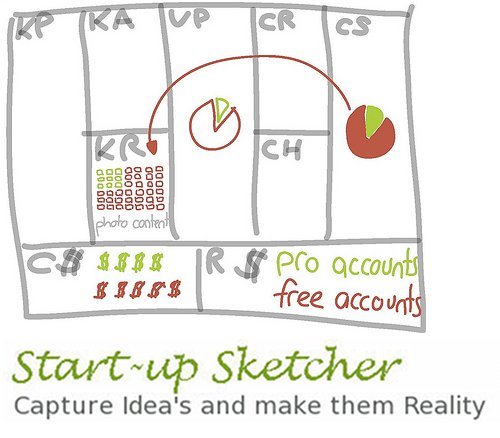 KP KA VP CR CS
KR CH
photo content
C$ $ $ $ $ R $ pro accounts
$ $ $ $ $ free accounts
Start~up Sketcher
Capture Idea's and make them Reality